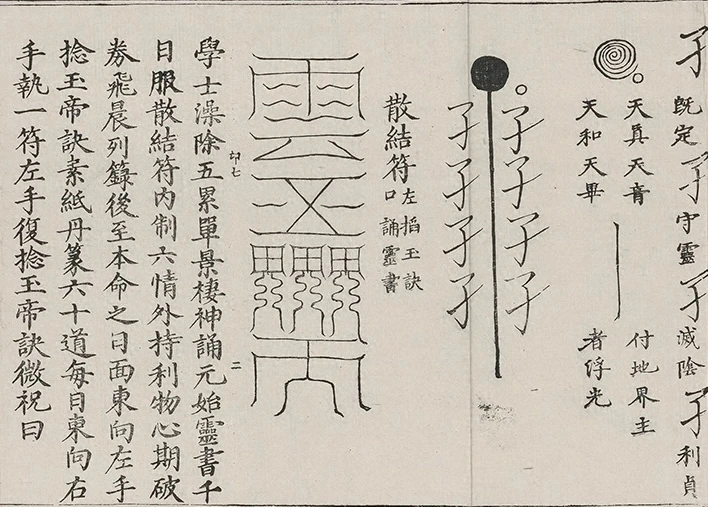 孑 既定 孑 守靈 孑 滅陰 孑 利貞
天真天音 付地界主
天和天畢 者浮光
孑孑孑孑
孑孑孑孑
散結符 左掐玉訣
口誦靈書
學士澡除五累單景棲神誦元始靈書千
日服散結符內制六情外持利物心期破
券飛晨列籙後至本命之日面東向左手
捻玉帝訣素紙丹篆六十道每日東向右
手執一符左手復捻玉帝訣微祝曰